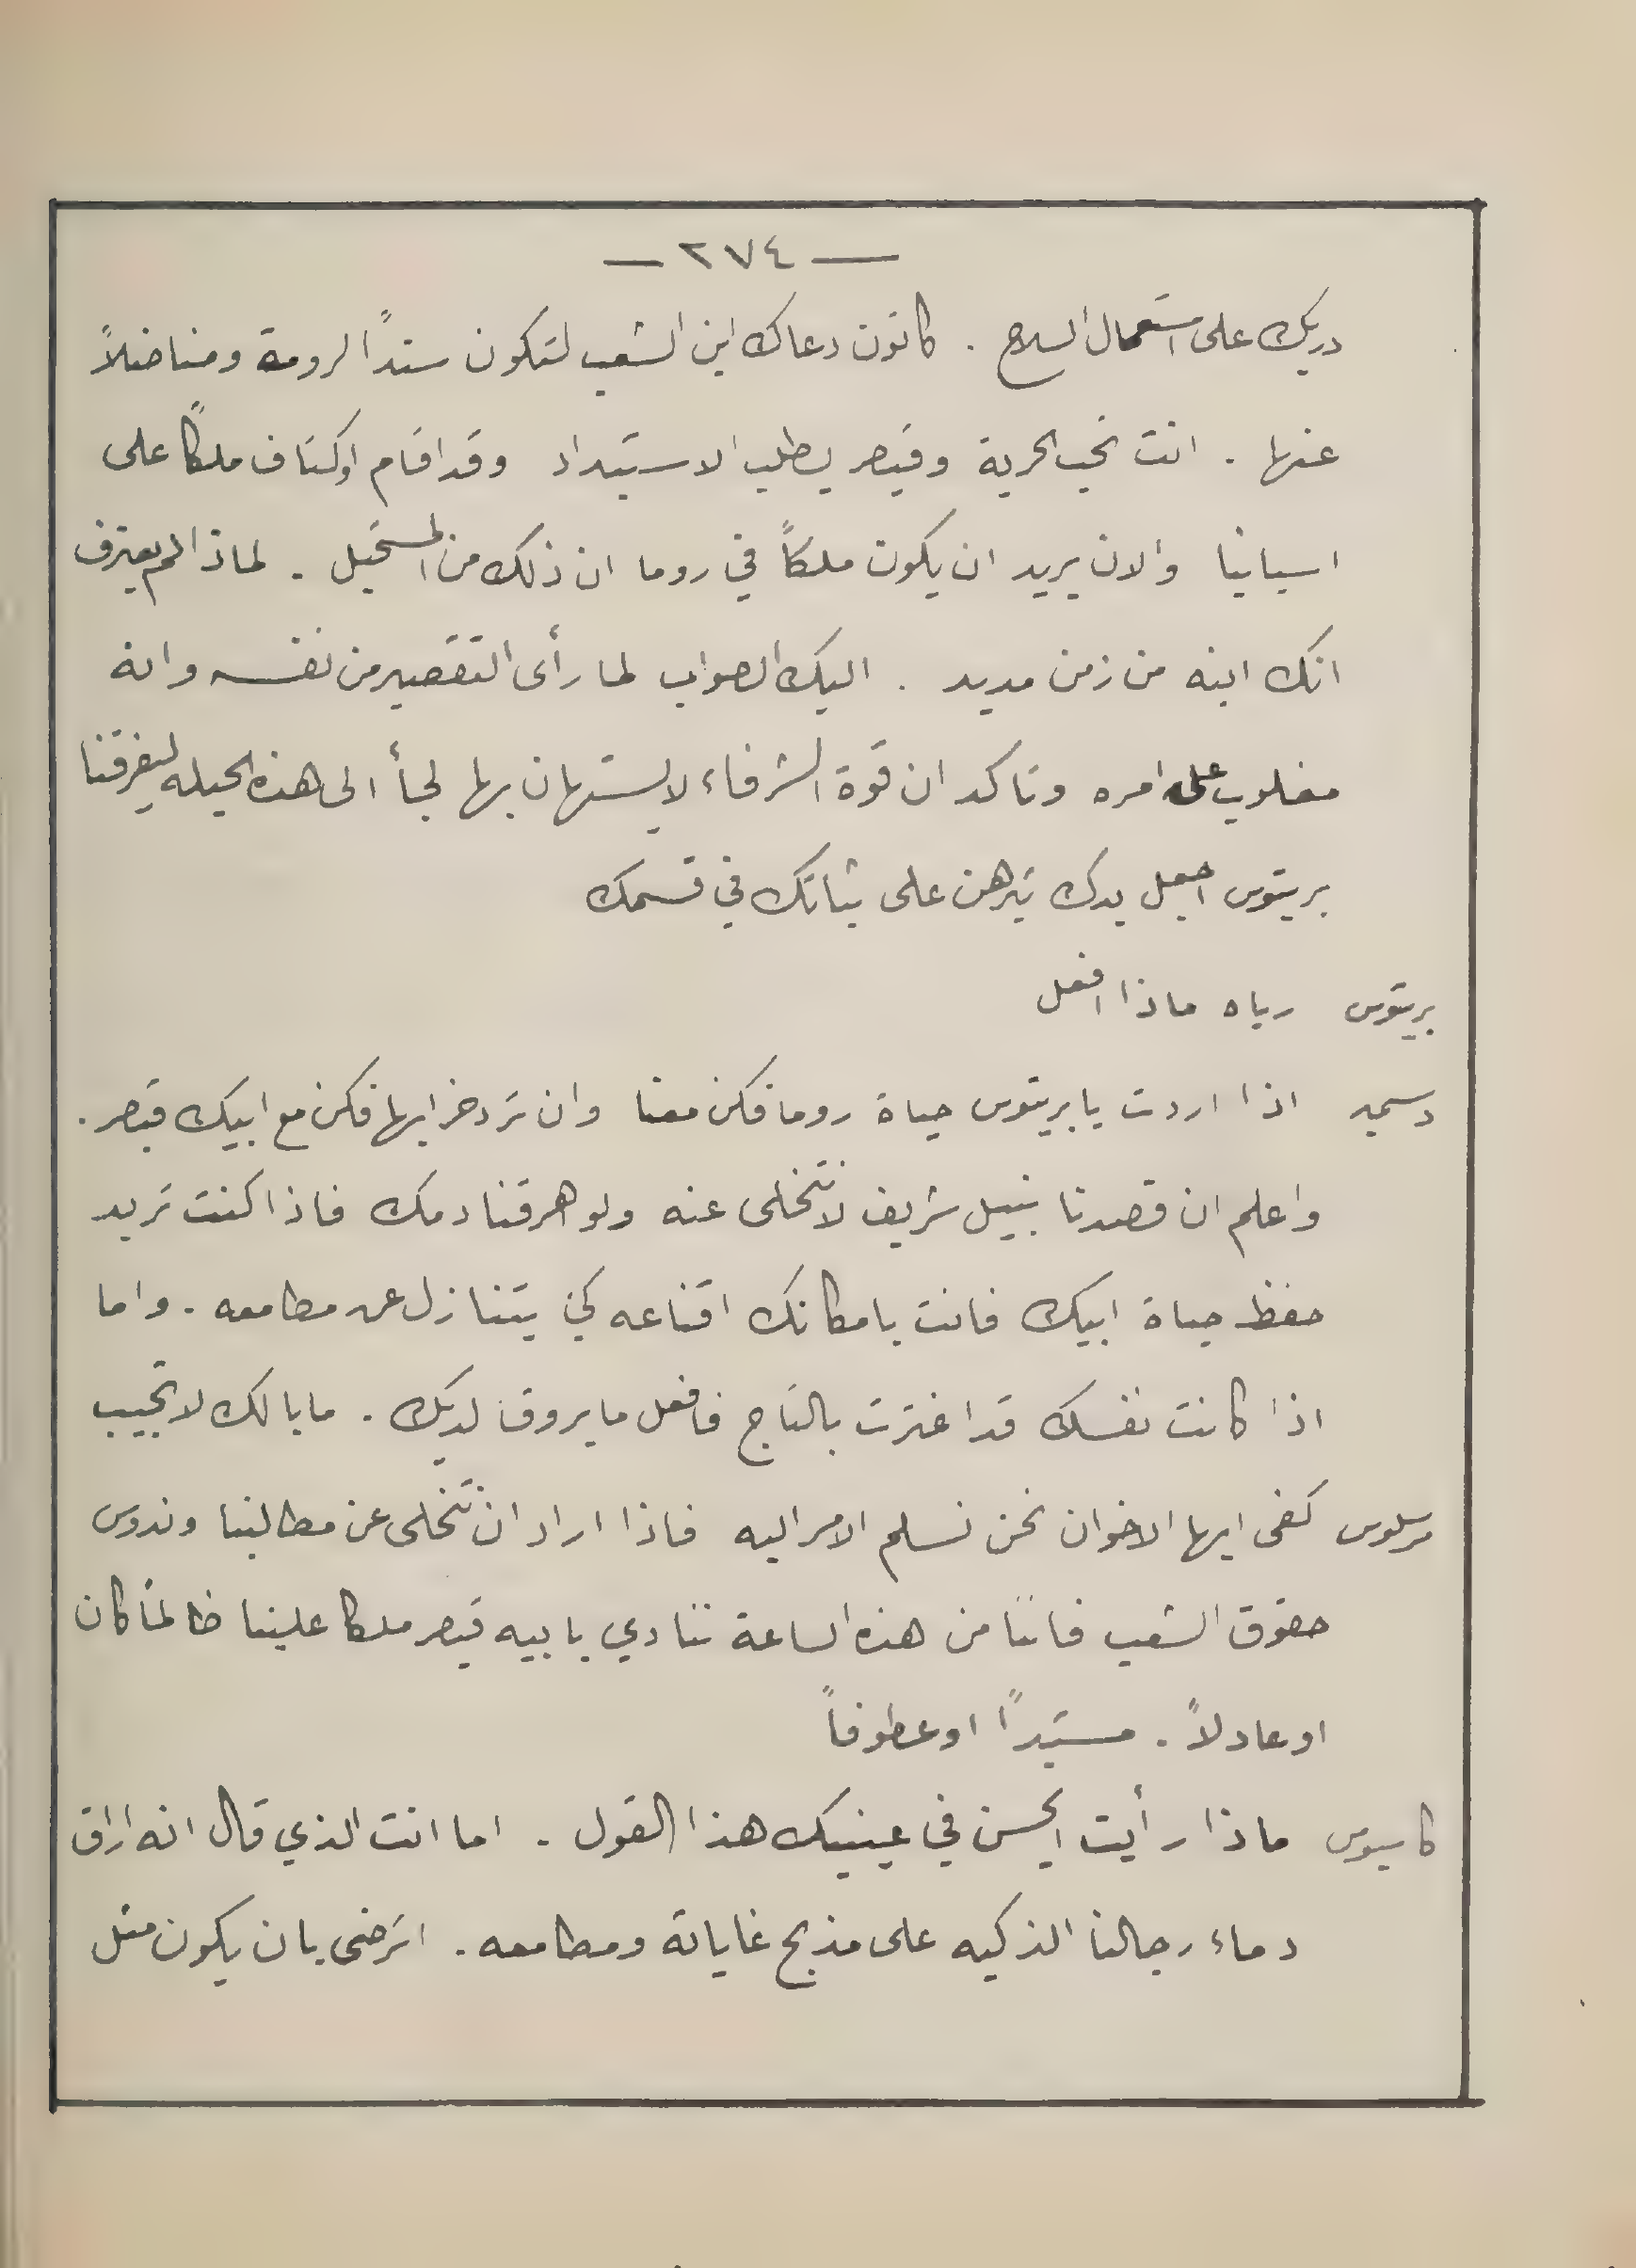 — ٢٧٤ —
دربك على استعمال السلاح . كاتون دعاك ابن الشعب لتكون سنداً لرومة ومناضلاً
عنها . انت تحب الحرية وقيصر يطلب الاستبداد وقد اقام اوكتاف ملكاً على
اسبانيا والان يريد ان يكون ملكاً في روما ان ذلك من المستحيل . لماذا لم يعترف
انك ابنه من زمن مديد . اليك الصواب لما رأى التقصير من نفسه وانه
مغلوب على امره وتاكد ان قوة الشرفاء لا يستهان بها لجأ الى هذه الحيله ليفرقنا
بريتوس اجعل يدك تبرهن على ثباتك في قسمك
بريتوس رباه ماذا افعل
دسمير اذا اردت يا بريتوس حياة روما فكن معنا وان ترد خرابها فكن مع ابيك قيصر .
واعلم ان قصدنا نبيل شريف لا نتخلى عنه ولو اهرقنا دمك فاذا كنت تريد
حفظ حياة ابيك فانت بامكانك اقناعه كي يتنازل عن مطامعه . واما
اذا كانت نفسك قد اغترت بالتاج فافعل ما يروق لديك . ما بالك لا تجيب
مرسلوس كفى ايها الاخوان نحن نسلم الامر اليه فاذا اراد ان نتخلى عن مطالبنا وندوس
حقوق الشعب فاننا من هذه الساعة ننادي بابيه قيصر ملكا علينا ظالماً كان
او عادلاً . مستبداً او عطوفاً
كاسيوس ماذا رأيت ايحسن في عينيك هذا القول . اما انت الذي قال انه اراق
دماء رجالنا الذكيه على مذبح غاياته ومطامعه . اترضى بان يكون مثل